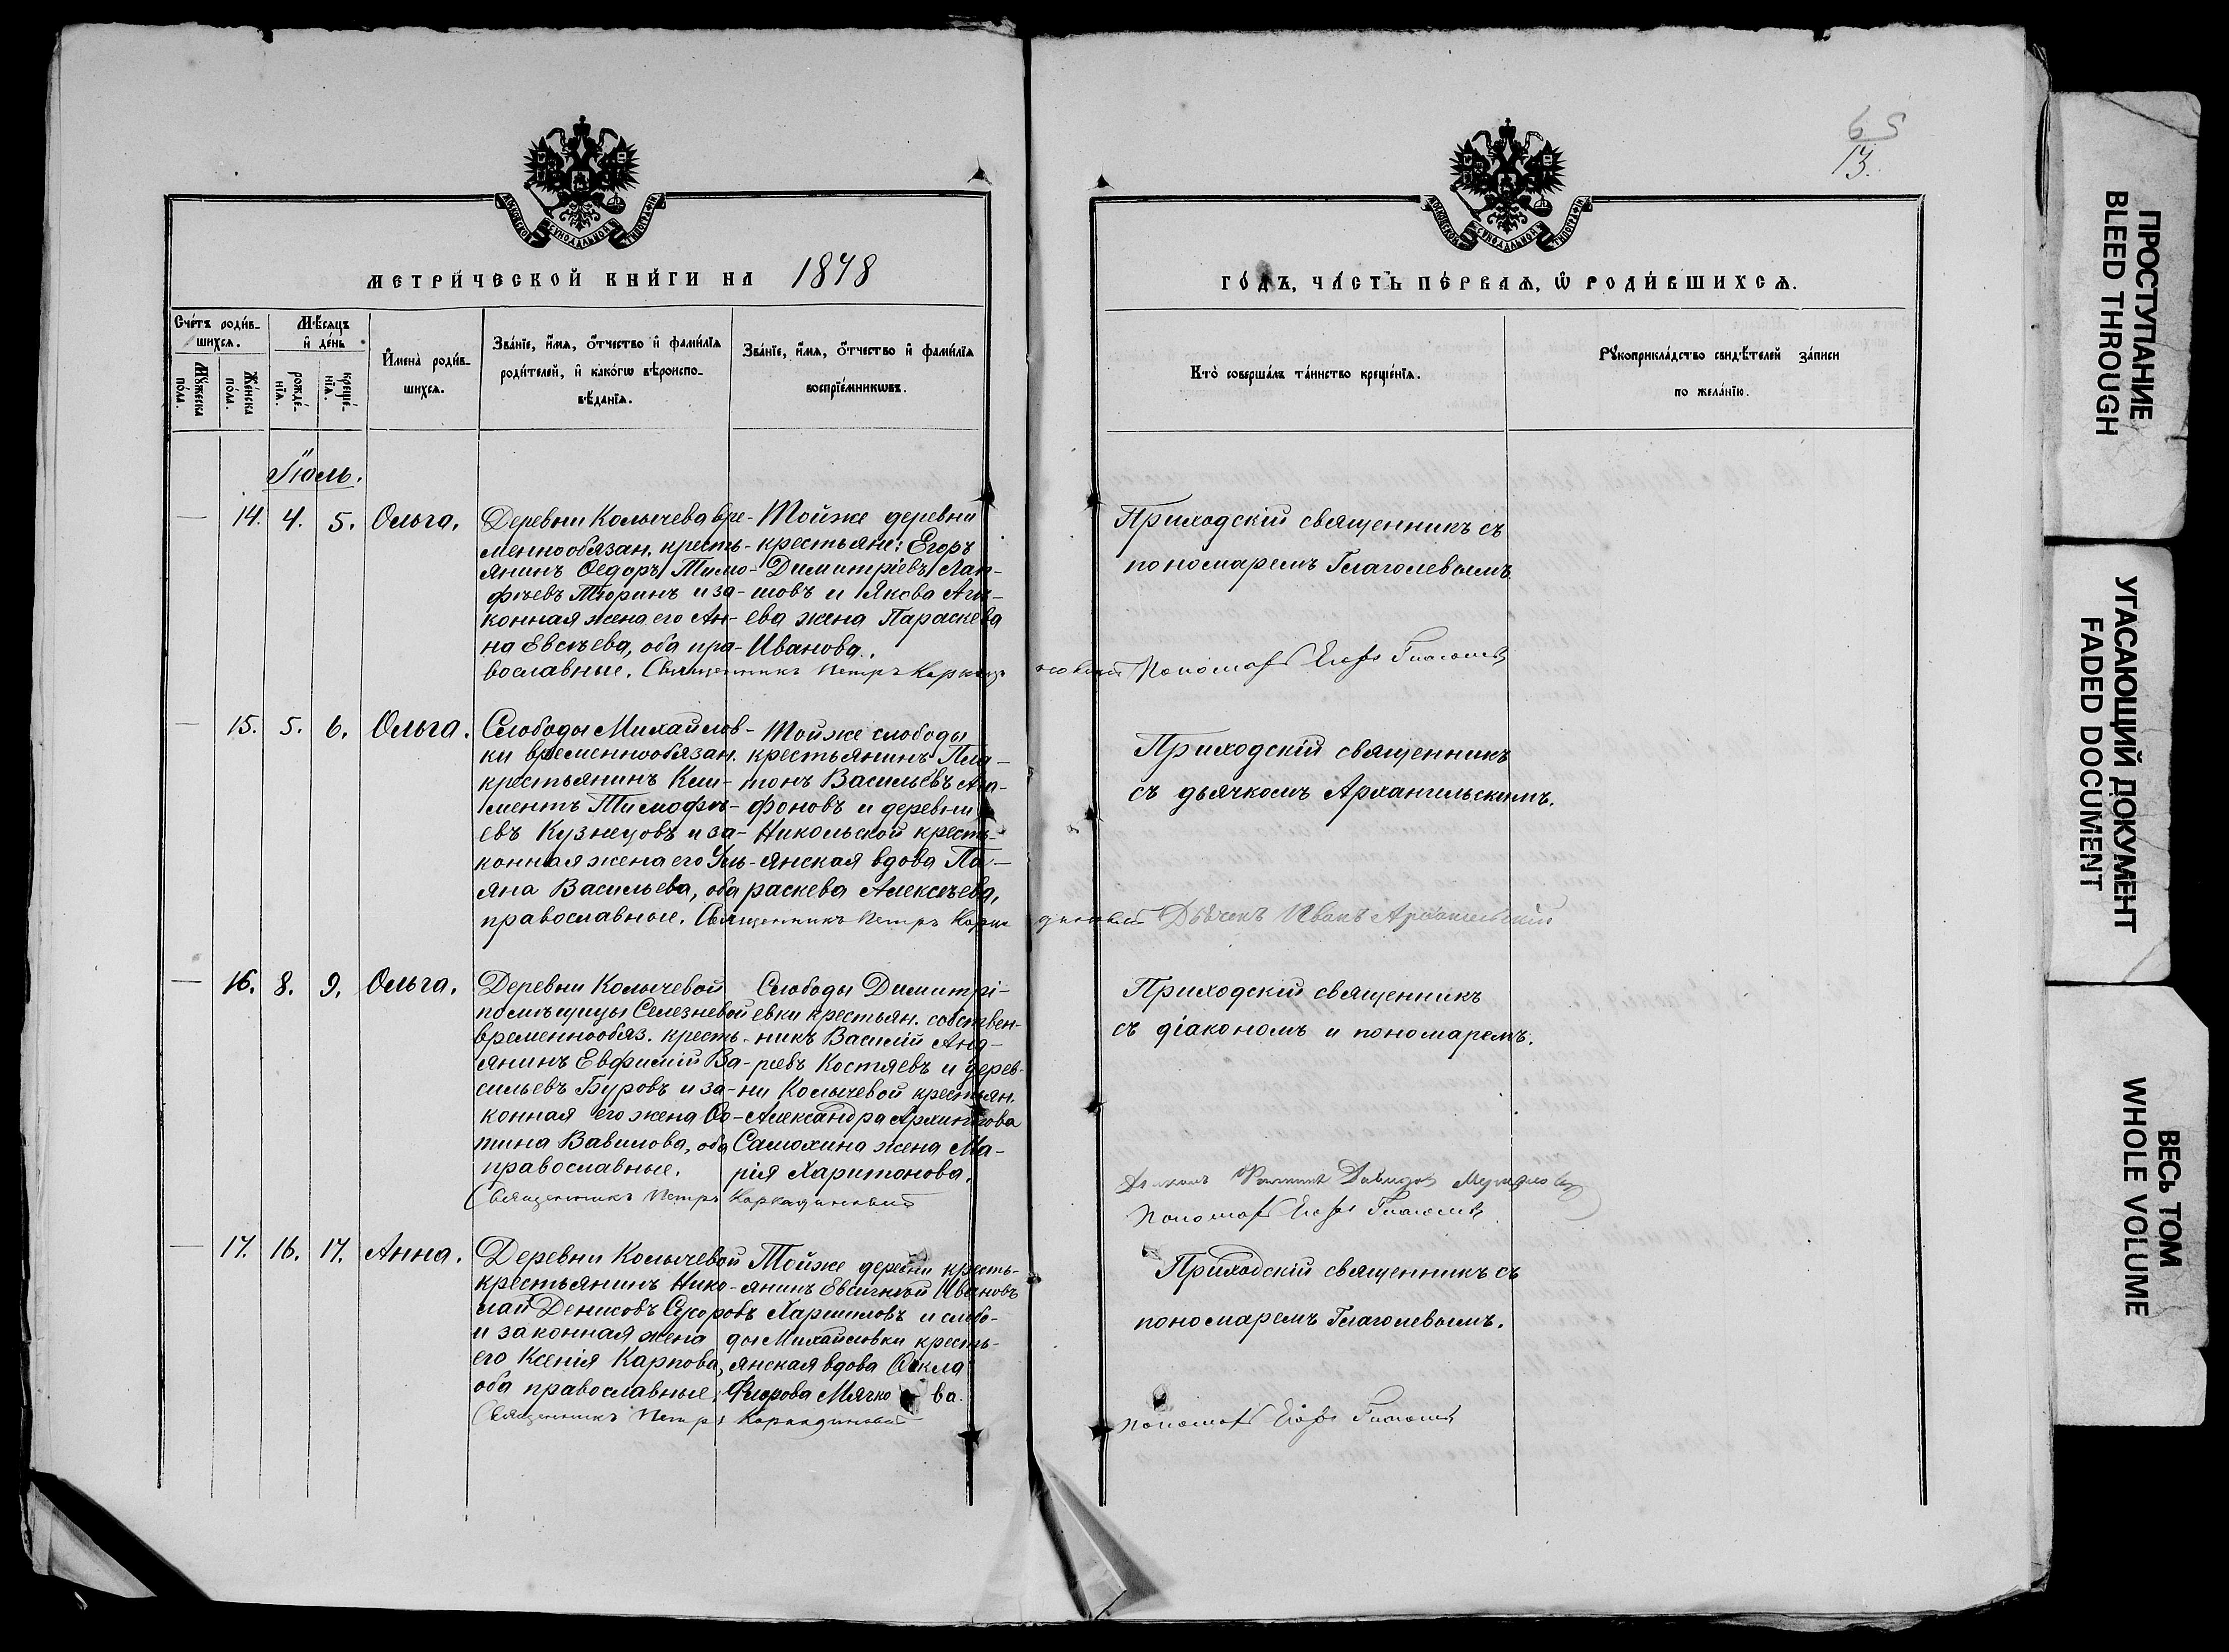 65
13.
МОСКОВСКОЙ СѴНОДАЛЬНОЙ ТИПОГРАФІИ
МОСКОВСКОЙ СѴНОДАЛЬНОЙ ТИПОГРАФІИ
МЕТРИ́ЧЕСКОЙ КНИ́ГИ НА 1878
ГО́ДЪ, ЧА́СТЬ ПЕ́РВАѦ, Ѽ РОДИ́ВШИХСѦ.
Сче́тъ роди́в-
шихсѧ.
Мѹ́жеска
по́ла.
Же́нска
по́ла.
Мѣ́сѧцъ
и҆ де́нь
рожде́-
нїѧ.
креще́-
нїѧ.
И҆мена̀ роди́в-
шихсѧ.
Зва́нїе, и҆́мѧ, ѻ҆́тчество и҆ фами́лїѧ
роди́телей, и҆ како́гѡ вѣроиспо-
вѣ́данїѧ.
Зва́нїе, и҆́мѧ, ѻ҆́тчество и҆ фами́лїѧ
воспрїе́мникѡвъ.
Кто̀ соверша́лъ та́инство креще́нїѧ.
Рѹкоприкла́дство свидѣ́телей за́писи
по жела́нїю.
Іюль.
— 14. 4. 5. Ольга.
Деревни Колычева вре-
меннообязан. кресть-
янинъ Ѳедоръ Тимо-
фѣевъ Тюринъ и за-
конная жена его Ан-
на Евсѣева, оба пра-
вославные. Священникъ Петръ Каркадиновскій
Тойже деревни
крестьяне: Егоръ
Димитріевъ Лап-
шовъ и Якова Аги-
ева жена Параскева
Иванова.
Приходскій священникъ съ
пономаремъ Глаголевымъ.
Пономарь Егоръ Глаголевъ
— 15. 5. 6. Ольга.
Слободы Михайлов-
ки временнообязан.
крестьянинъ Кли-
ментъ Тимофѣ-
евъ Кузнецовъ и за-
конная жена его Уль-
яна Васильева, оба
православные. Священникъ Петръ Каркадиновскій
Тойже слободы
крестьянинъ Пла-
тонъ Васильевъ Ага-
фоновъ и деревни
Никольской кресть-
янская вдова Па-
раскева Алексѣева.
Приходскій священникъ
съ дьячкомъ Архангельскимъ.
Дьячекъ Иванъ Архангельскій
— 16. 8. 9. Ольга.
Деревни Колычевой
помѣщицы Селезневой
временнообяз. кресть-
янинъ Евфимій Ва-
сильевъ Буровъ и за-
конная его жена Фо-
тина Вавилова, оба
православные.
Священникъ Петръ Каркадиновскій
Слободы Димитрі-
евки крестьян. собствен-
никъ Василій Анд-
реевъ Костяевъ и дерев-
ни Колычевой крестьян.
Александра Архиппова
Самохина жена Ма-
рія Харитонова.
Приходскій священникъ
съ діакономъ и пономаремъ.
Пономарь Егоръ Глаголевъ
— 17. 16. 17. Анна.
Деревни Колычевой
крестьянинъ Нико-
лай Денисовъ Суровъ
и законная жена
его Ксенія Карпова,
оба православные.
Священникъ Петръ Каркадиновскій
Тойже деревни кресть-
янинъ Евсигній Ивановъ
Харламовъ и слобо-
ды Михайловки кресть-
янская вдова Ѳекла
Флорова Мячкова.
Приходскій священникъ съ
пономаремъ Глаголевымъ.
Пономарь Егоръ Глаголевъ
ПРОСТУПАНИЕ
BLEED THROUGH
УГАСАЮЩИЙ ДОКУМЕНТ
FADED DOCUMENT
ВЕСЬ ТОМ
WHOLE VOLUME